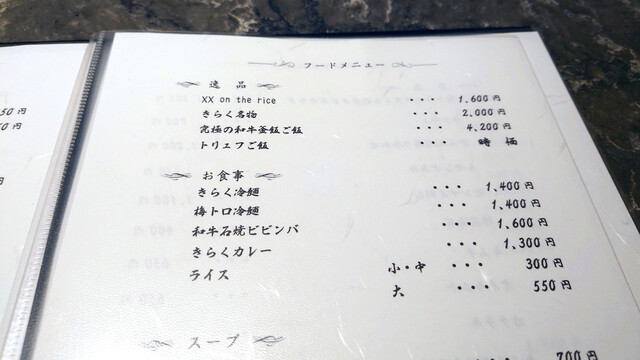 フードメニュー
逸品
XX on the rice ・・・ 1,600円
きらく名物 ・・・ 2,000円
究極の和牛釜飯ご飯 ・・・ 4,200円
トリュフご飯 ・・・ 時価
お食事
きらく冷麺 ・・・ 1,400円
梅トロ冷麺 ・・・ 1,400円
和牛石焼ビビンバ ・・・ 1,600円
きらくカレー ・・・ 1,300円
ライス 小・中 ・・・ 300円
大 ・・・ 550円
スープ
700円
50円
50円
円